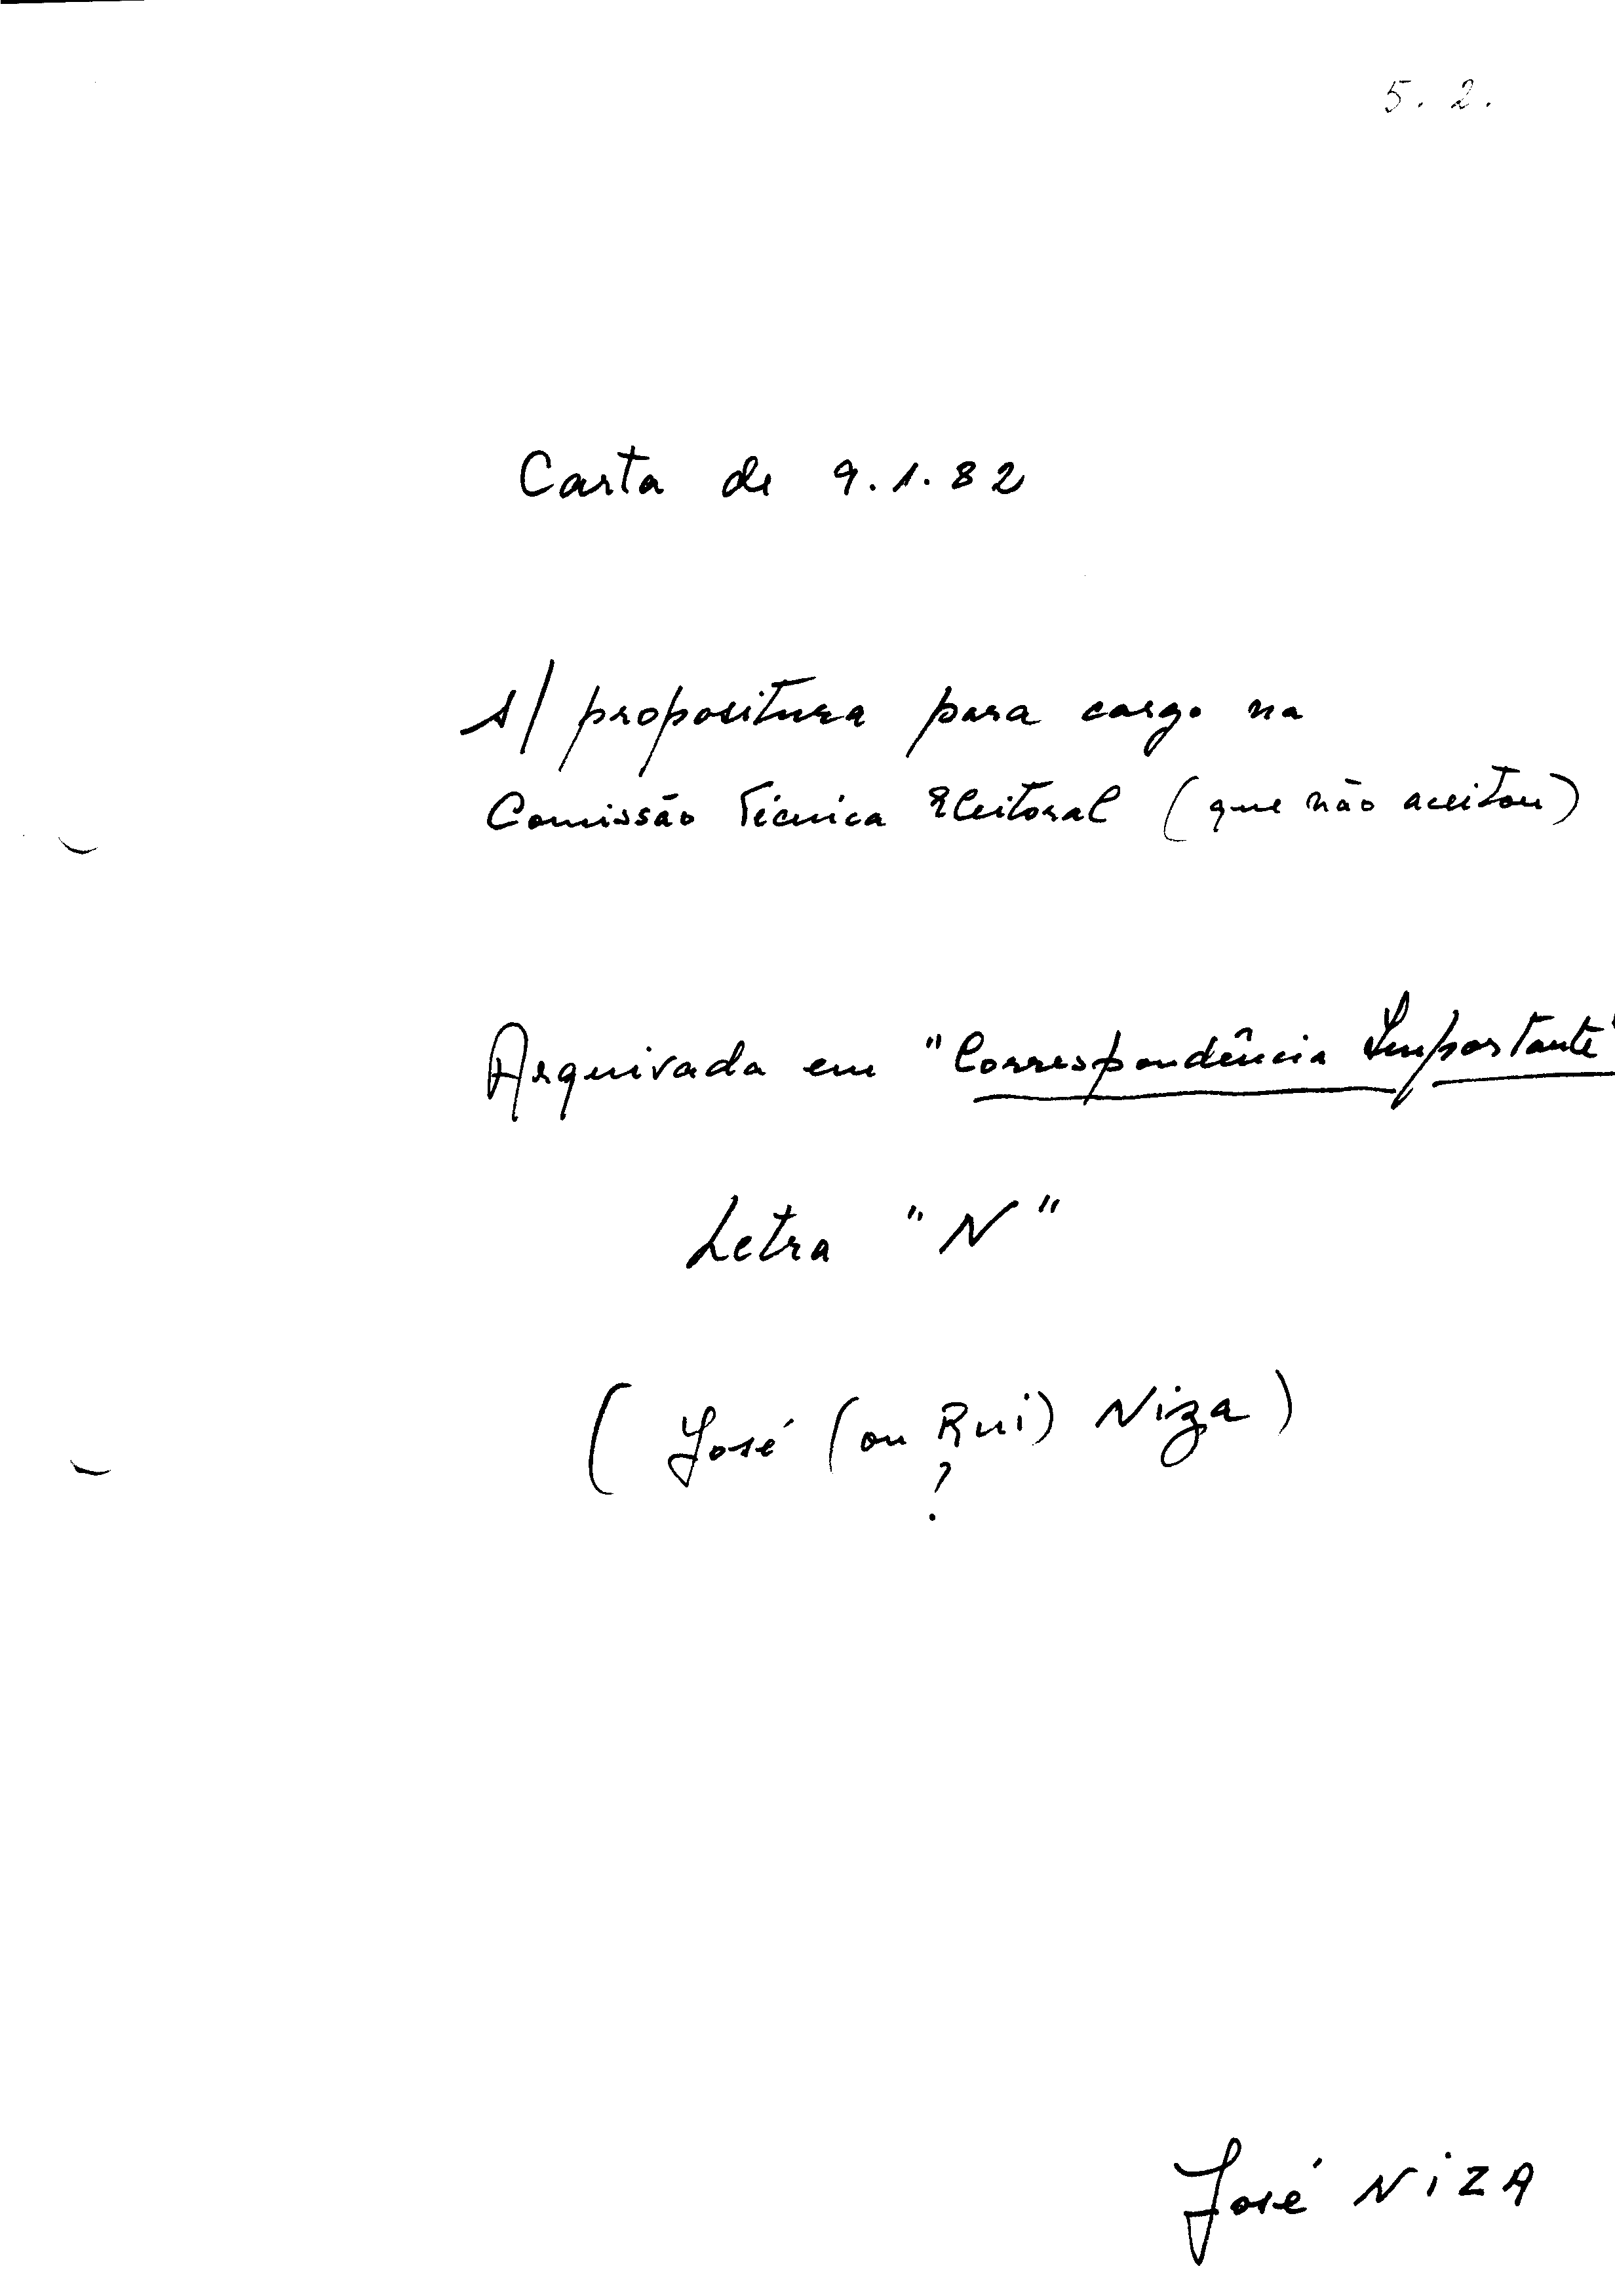 5. 2.
Carta de 9.1.82
s/ propositura para cargo na
Comissão Técnica Eleitoral (que não aceitou)
Arquivada em "Correspondência Importante"
Letra "N"
(José (ou Rui) Niza)
?
José NiZA